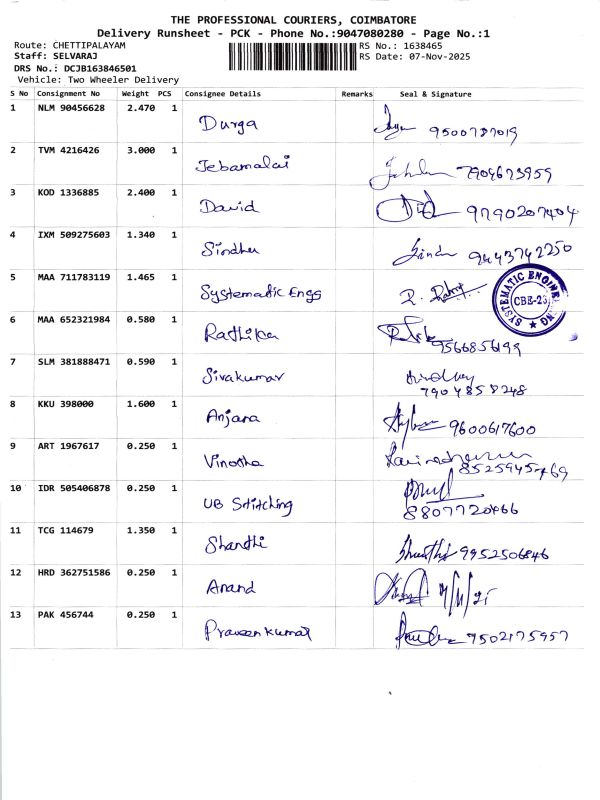 THE PROFESSIONAL COURIERS, COIMBATORE
Delivery Runsheet - PCK - Phone No.:9047080280 - Page No.:1
Route: CHETTIPALAYAM RS No.: 1638465
Staff: SELVARAJ RS Date: 07-Nov-2025
DRS No.: DCJB163846501
Vehicle: Two Wheeler Delivery
S No Consignment No Weight PCS Consignee Details Remarks Seal & Signature
1 NLM 90456628 2.470 1 Durga
2 TVM 4216426 3.000 1 Jebamalai 7904673959
3 KOD 1336885 2.400 1 David 9790207404
4 IXM 509275603 1.340 1 Sindhu 9443742250
5 MAA 711783119 1.465 1 Systematic Engs SYSTEMATIC ENGINEERING CBE-23
6 MAA 652321984 0.580 1 Rathika 9566856199
7 SLM 381888471 0.590 1 Sivakumar 7904858248
8 KKU 398000 1.600 1 Anjana 9600617600
9 ART 1967617 0.250 1 Vinotha
10 IDR 505406878 0.250 1 UB Stitching 8807720466
11 TCG 114679 1.350 1 Shanthi Shanthi 9952506846
12 HRD 362751586 0.250 1 Anand
13 PAK 456744 0.250 1 Praveen kumar 9502175957